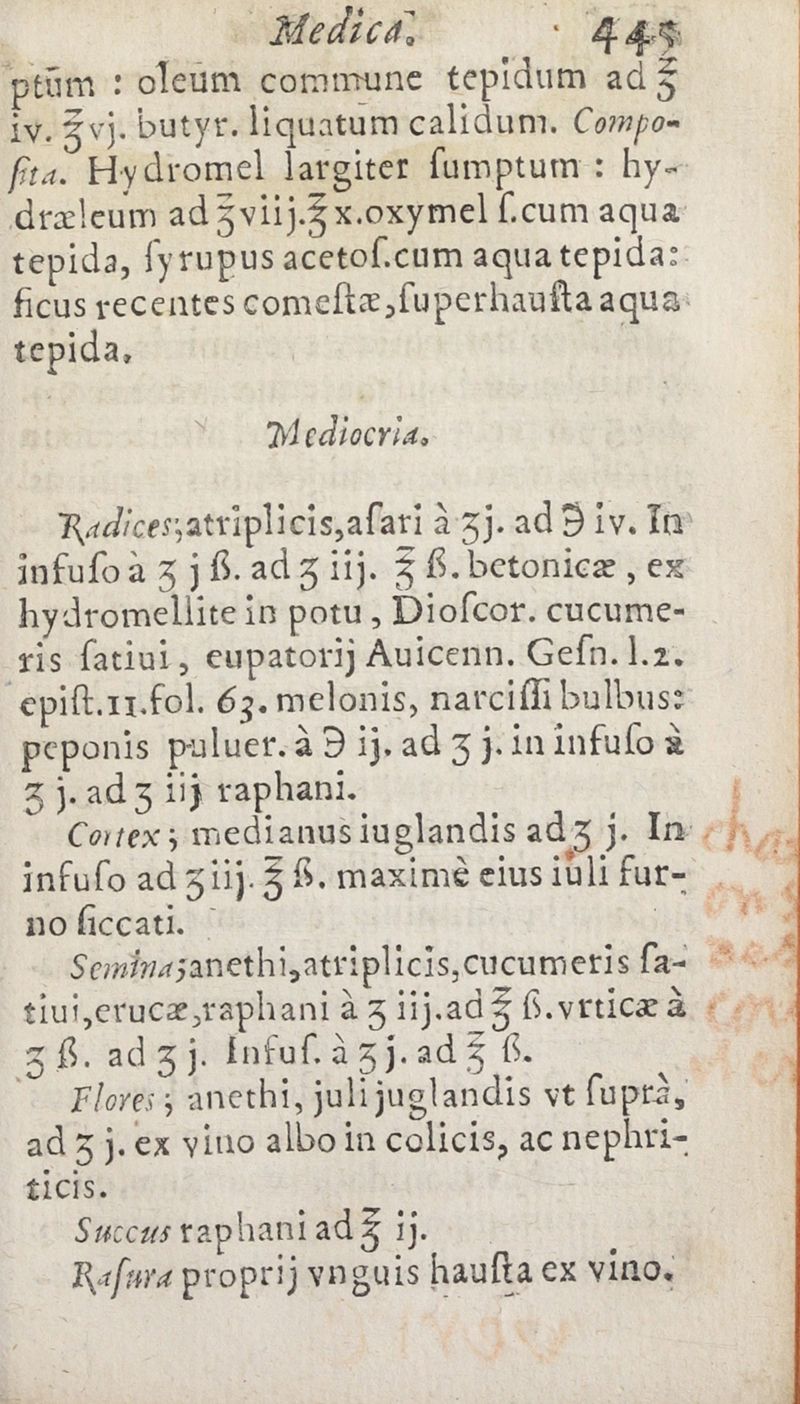 Medica. 445
ptūm : oleum commune tepidum ad ℥
iv. ℥vj. butyr. liquatum calidum. Compo-
ſita. Hydromel largiter ſumptum : hy-
dræleum ad ℥viij.℥x.oxymel ſ.cum aqua
tepida, ſyrupus acetoſ.cum aqua tepida:
ficus recentes comeſtæ,ſuperhauſta aqua
tepida.
Mediocria.
Radices;atriplicis,aſari à ʒj. ad ℈ iv. In
infuſo à ʒ j ß. ad ʒ iij. ℥ ß. betonicæ , ex
hydromellite in potu , Dioſcor. cucume-
ris ſatiui, eupatorij Auicenn. Geſn. l.2.
epiſt.11.fol. 63. melonis, narciſſi bulbus:
peponis puluer. à ℈ ij. ad ʒ j. in infuſo à
ʒ j. ad ʒ iij raphani.
Cortex; medianus iuglandis ad ʒ j. In
infuſo ad ʒiij. ℥ ß. maximè eius iuli fur-
no ſiccati.
Semina;anethi,atriplicis,cucumeris ſa-
tiui,erucæ,raphani à ʒ iij.ad ℥ ß.vrticæ à
ʒ ß. ad ʒ j. Infuſ. à ʒ j. ad ℥ ß.
Flores; anethi, juli juglandis vt ſuprà,
ad ʒ j. ex vino albo in colicis, ac nephri-
ticis.
Succus raphani ad ℥ ij.
Raſura proprij vnguis hauſta ex vino.